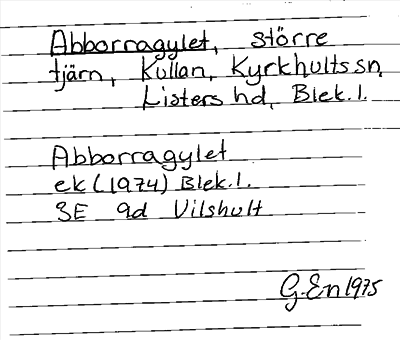 Abborragylet, större
tjärn, Kullan, Kyrkhults sn,
Listers hd, Blek.l.
Abborragylet
ek (1974) Blek.l.
3E 9d Vilshult
G.En 1975